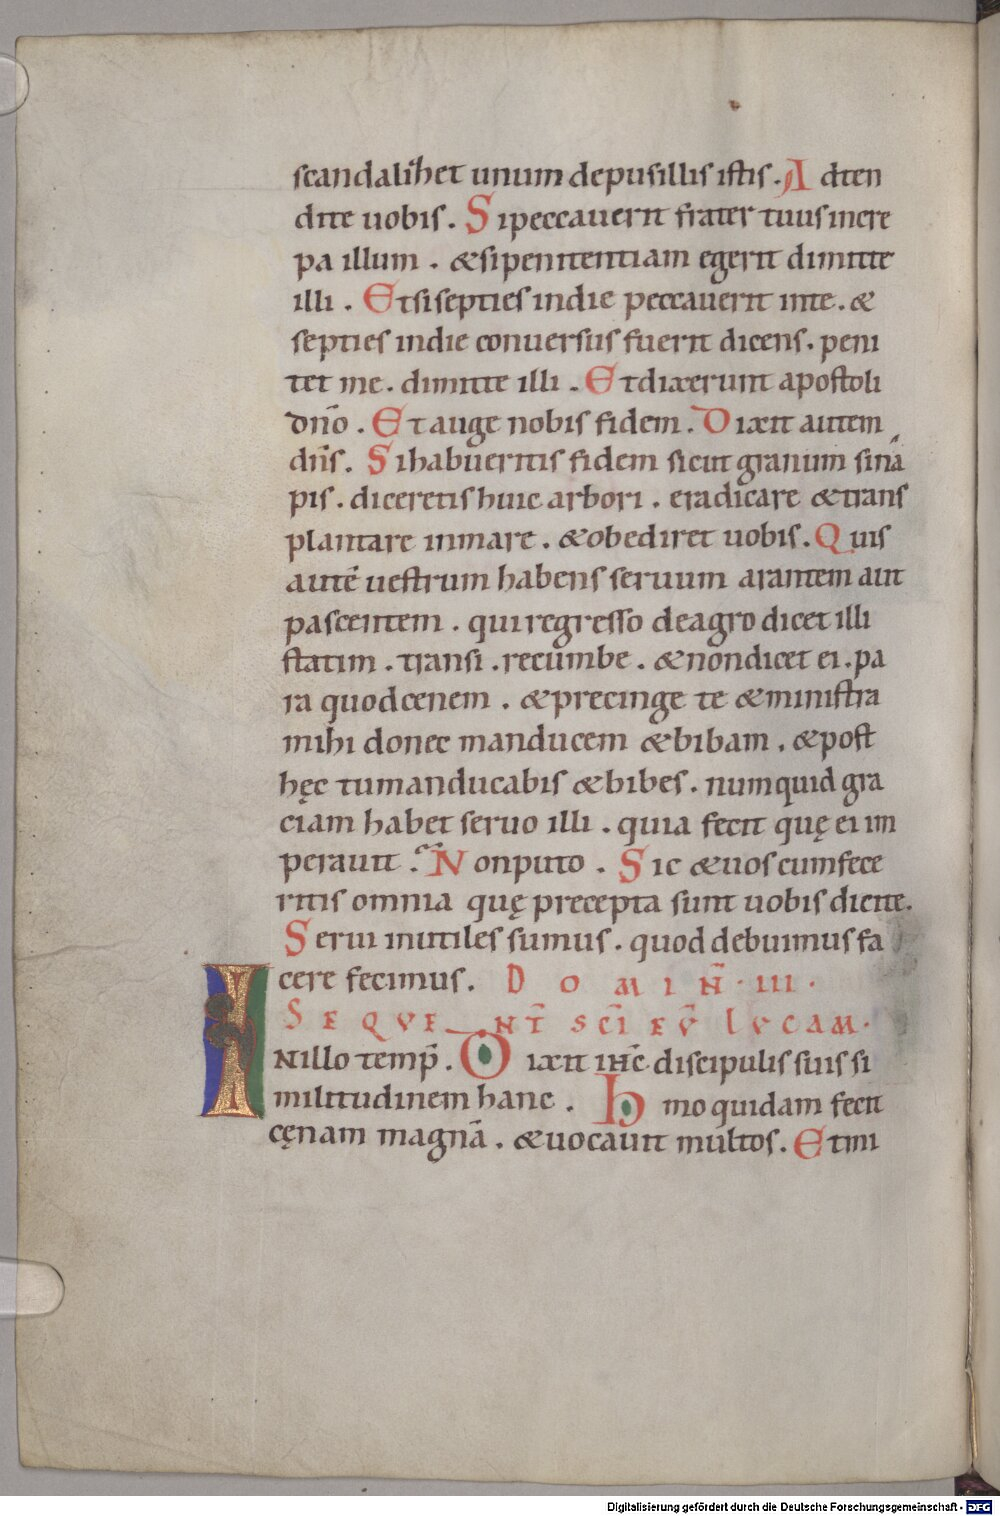 scandalizet unum de pusillis istis. Adten
dite uobis. Si peccauerit frater tuus incre
pa illum. & si penitentiam egerit dimitte
illi. Et si septies in die peccauerit in te. &
septies in die conuersus fuerit dicens. peni
tet me. dimitte illi. Et dixerunt apostoli
dn̄o. Et auge nobis fidem. Dixit autem
dn̄s. Si habueritis fidem sicut granum sina
pis. diceretis huic arbori. eradicare & trans
plantare in mare. & obediret uobis. Quis
autē uestrum habens seruum arantem aut
pascentem. qui regresso de agro dicet illi
statim. transi. recumbe. & non dicet ei. pa
ra quod cenem. & precinge te & ministra
mihi donec manducem & bibam. & post
hęc tu manducabis & bibes. numquid gra
ciam habet seruo illi. quia fecit quę ei im
perauit. Non puto. Sic & uos cum fece
ritis omnia quę precepta sunt uobis dicite.
Serui inutiles sumus. quod debuimus fa
cere fecimus. DOMIN̄. III.
SEQVENT̄ SC̄I EV̄ LVCAM.
INillo temp̄. Dixit ihc̄ discipulis suis si
militudinem hanc. Homo quidam fecit
cęnam magnā. & uocauit multos. Et mi
Digitalisierung gefördert durch die Deutsche Forschungsgemeinschaft - DFG